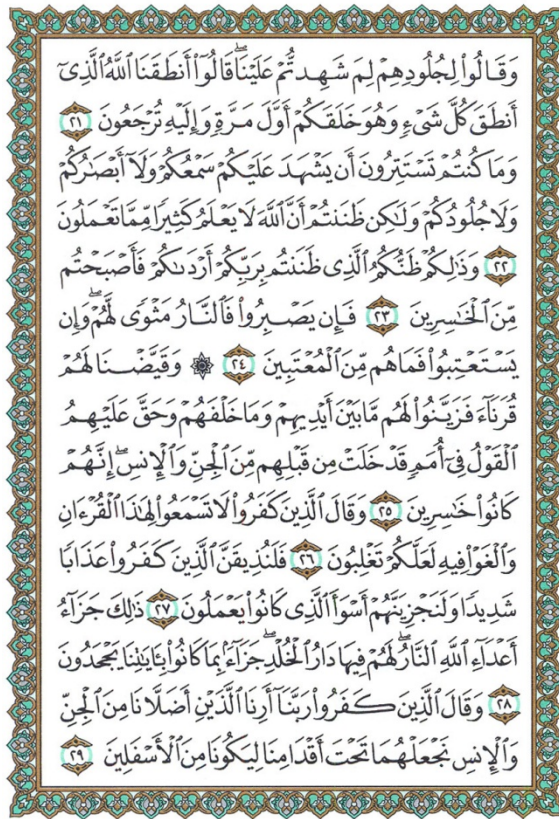 وَقَالُوا۟ لِجُلُودِهِمْ لِمَ شَهِدتُّمْ عَلَيْنَا ۖ قَالُوٓا۟ أَنطَقَنَا ٱللَّهُ ٱلَّذِىٓ
أَنطَقَ كُلَّ شَىْءٍ وَهُوَ خَلَقَكُمْ أَوَّلَ مَرَّةٍ وَإِلَيْهِ تُرْجَعُونَ ٢١
وَمَا كُنتُمْ تَسْتَتِرُونَ أَن يَشْهَدَ عَلَيْكُمْ سَمْعُكُمْ وَلَآ أَبْصَـٰرُكُمْ
وَلَا جُلُودُكُمْ وَلَـٰكِن ظَنَنتُمْ أَنَّ ٱللَّهَ لَا يَعْلَمُ كَثِيرًا مِّمَّا تَعْمَلُونَ
٢٢ وَذَٰلِكُمْ ظَنُّكُمُ ٱلَّذِى ظَنَنتُم بِرَبِّكُمْ أَرْدَىٰكُمْ فَأَصْبَحْتُم
مِّنَ ٱلْخَـٰسِرِينَ ٢٣ فَإِن يَصْبِرُوا۟ فَٱلنَّارُ مَثْوًى لَّهُمْ ۖ وَإِن
يَسْتَعْتِبُوا۟ فَمَا هُم مِّنَ ٱلْمُعْتَبِينَ ٢٤ ۞ وَقَيَّضْنَا لَهُمْ
قُرَنَآءَ فَزَيَّنُوا۟ لَهُم مَّا بَيْنَ أَيْدِيهِمْ وَمَا خَلْفَهُمْ وَحَقَّ عَلَيْهِمُ
ٱلْقَوْلُ فِىٓ أُمَمٍ قَدْ خَلَتْ مِن قَبْلِهِم مِّنَ ٱلْجِنِّ وَٱلْإِنسِ ۖ إِنَّهُمْ
كَانُوا۟ خَـٰسِرِينَ ٢٥ وَقَالَ ٱلَّذِينَ كَفَرُوا۟ لَا تَسْمَعُوا۟ لِهَـٰذَا ٱلْقُرْءَانِ
وَٱلْغَوْا۟ فِيهِ لَعَلَّكُمْ تَغْلِبُونَ ٢٦ فَلَنُذِيقَنَّ ٱلَّذِينَ كَفَرُوا۟ عَذَابًا
شَدِيدًا وَلَنَجْزِيَنَّهُمْ أَسْوَأَ ٱلَّذِى كَانُوا۟ يَعْمَلُونَ ٢٧ ذَٰلِكَ جَزَآءُ
أَعْدَآءِ ٱللَّهِ ٱلنَّارُ ۖ لَهُمْ فِيهَا دَارُ ٱلْخُلْدِ ۖ جَزَآءًۢ بِمَا كَانُوا۟ بِـَٔايَـٰتِنَا يَجْحَدُونَ
٢٨ وَقَالَ ٱلَّذِينَ كَفَرُوا۟ رَبَّنَآ أَرِنَا ٱلَّذَيْنِ أَضَلَّانَا مِنَ ٱلْجِنِّ
وَٱلْإِنسِ نَجْعَلْهُمَا تَحْتَ أَقْدَامِنَا لِيَكُونَا مِنَ ٱلْأَسْفَلِينَ ٢٩